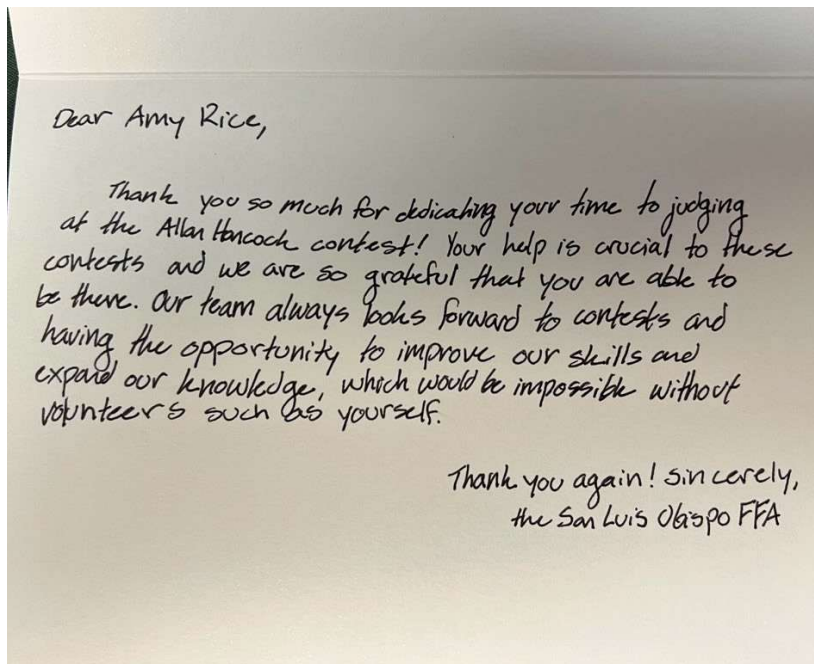 Dear Amy Rice,
Thank you so much for dedicating your time to judging
at the Allan Hancock contest! Your help is crucial to these
contests and we are so grateful that you are able to
be there. Our team always looks forward to contests and
having the opportunity to improve our skills and
expand our knowledge, which would be impossible without
volunteers such as yourself.
Thank you again! Sincerely,
the San Luis Obispo FFA